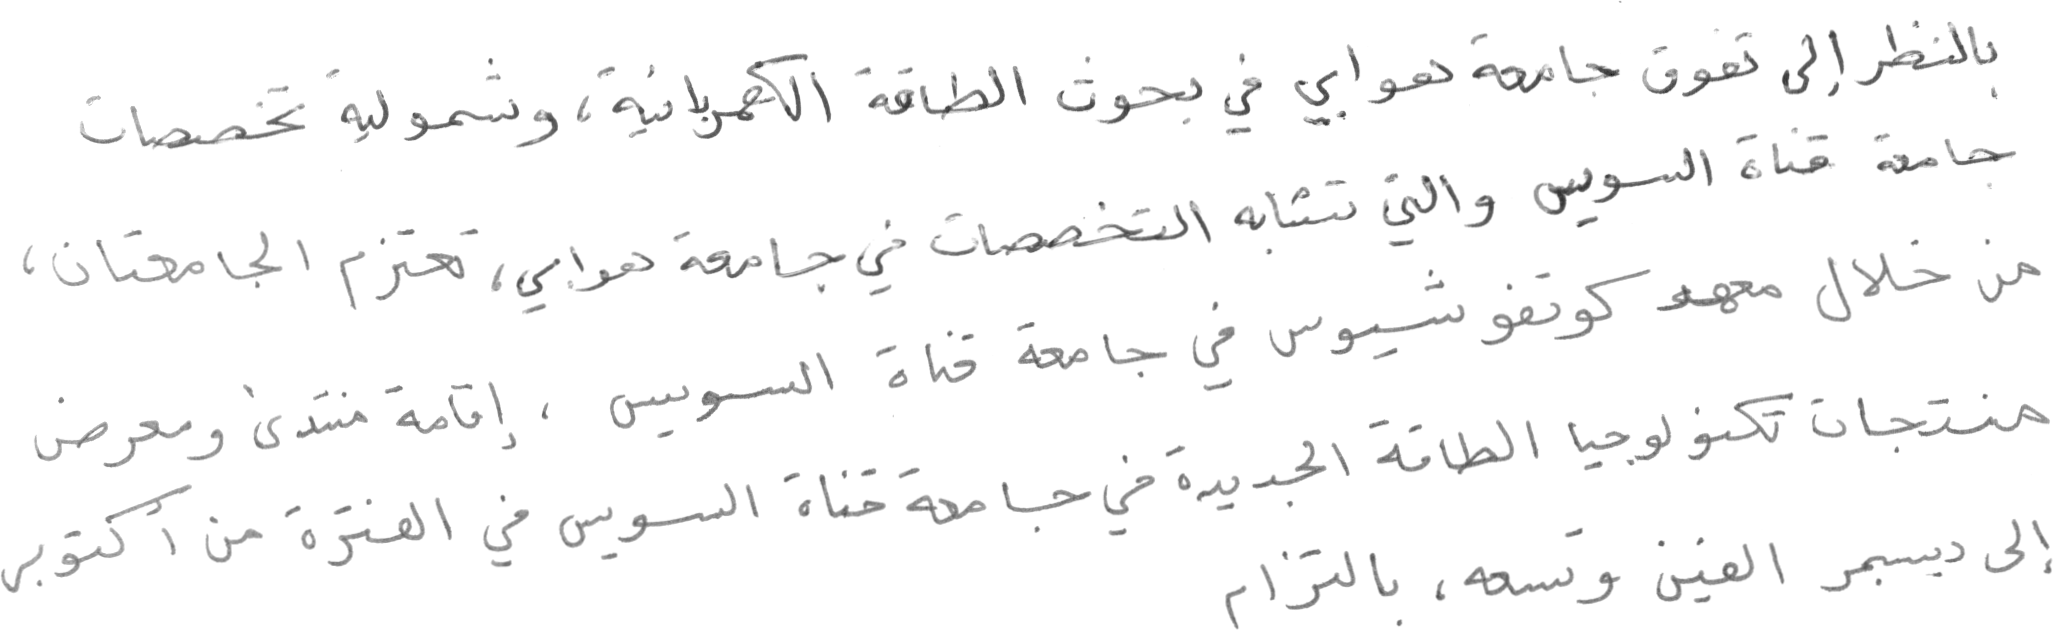 بالنظر إلى تفوق جامعة هوابي في بحوث الطاقة الكهربائية، وشمولية تخصصات
جامعة قناة السويس والتي تتشابه التخصصات في جامعة هوابي، تعتزم الجامعتان،
من خلال معهد كونفوشيوس في جامعة قناة السويس ، إقامة منتدى ومعرض
منتجات تكنولوجيا الطاقة الجديدة في جامعة قناة السويس في الفترة من أكتوبر
إلى ديسمبر الفين وتسعه، بالتزام